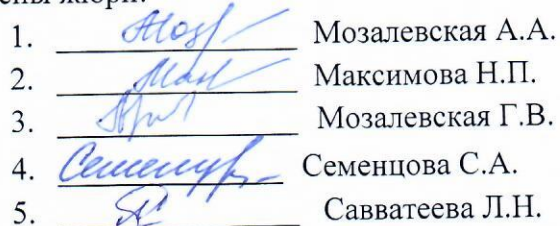 1. Мозалевская А.А.
2. Максимова Н.П.
3. Мозалевская Г.В.
4. Семенцова С.А.
5. Савватеева Л.Н.